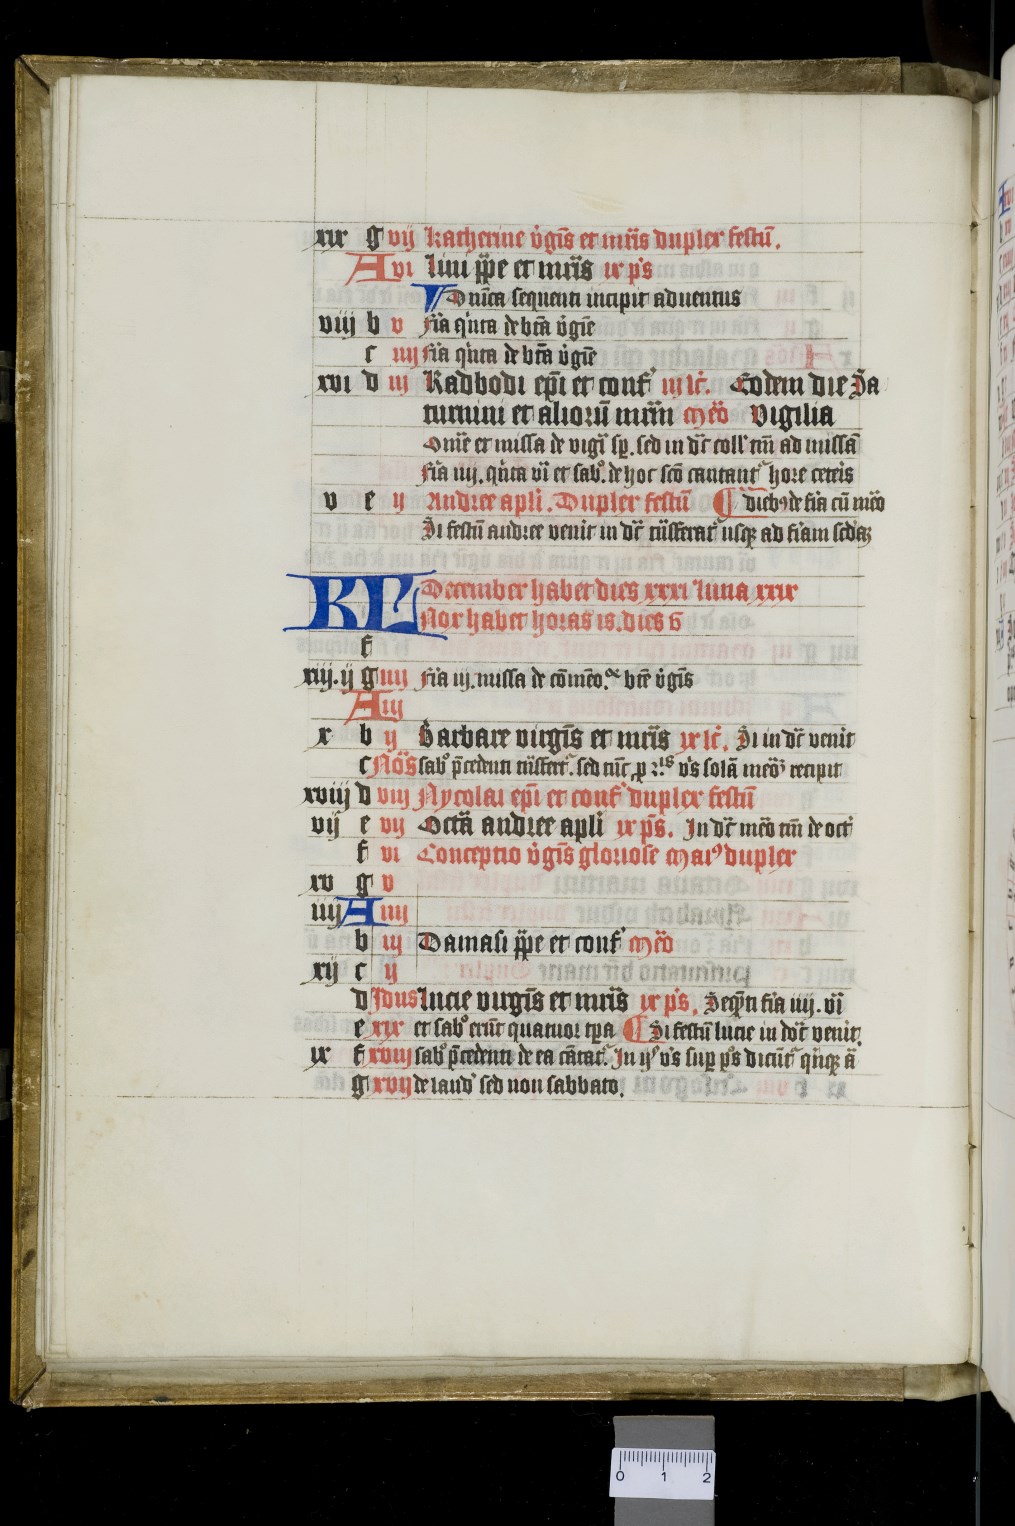 xix g vij Katherine v̇gīs et mr̄is duplex festū.
A vi Lini pp̄e et mr̄is ix ps̄
Dn̄ica sequenti incipit aduentus
viij b v fīa qīnta de btā v̇gīe
c iiij fīa qīnta de btā v̇gīe
xvi d iij Radbodi ep̄i et conf' iij lc̄. Eodem die Sa
turnini et aliorū mr̄m meō Vigilia
Om̄e et missa de vigī sp̄. sed in dc̄ coll' tm̄ ad missā
fīa iiij. qīnta vī et sabo. de hoc scō cantant᷑ hore ceteīs
v e ij Andree apli. Duplex festū Diebꝰ de fīa cū meō
Si festū andree venit in dc̄ tn̄sferat᷑ usqꝫ ad fīam scd̄aꝫ
KL December habet dies xxxi luna xxix
Nox habet horas 18. dies 6
f
xiij. ij g iiij fīa iij. missa de cōmēo.ͤ bt̄e v̇gīs
A iij
x b ij Barbare virgīs et mr̄is ix lc̄. Si in dc̄ venit
c Nos̄ sabo p̄cedenti tn̄sfert᷑. sed tūc vs̄ solā meō recipit
xviij d viij Nycolai ep̄i et conf' duplex festū
vij e vij Octā andree apli ix ps̄. In dc̄ meō tm̄ de oct'
f vi Conceptio v̇gīs gloriose Maīꝰ duplex
xv g v
iiij A iiij
b iij Damasi pp̄e et conf' meō
xij c ij
d Idus Lucie virgīs et mr̄is ix ps̄. Seqn̄ti fīa iiij. vī
e xix et sabo erūt quatuor tp̄a Si festū lucie in dōc̄ venit.
ix f xviij sabo p̄cedenti de ea cātat᷑. In qo vs̄ sup ps̄ dicūt᷑ qīnqꝫ ā
g xvij de laud' sed non sabbato.
0 1 2